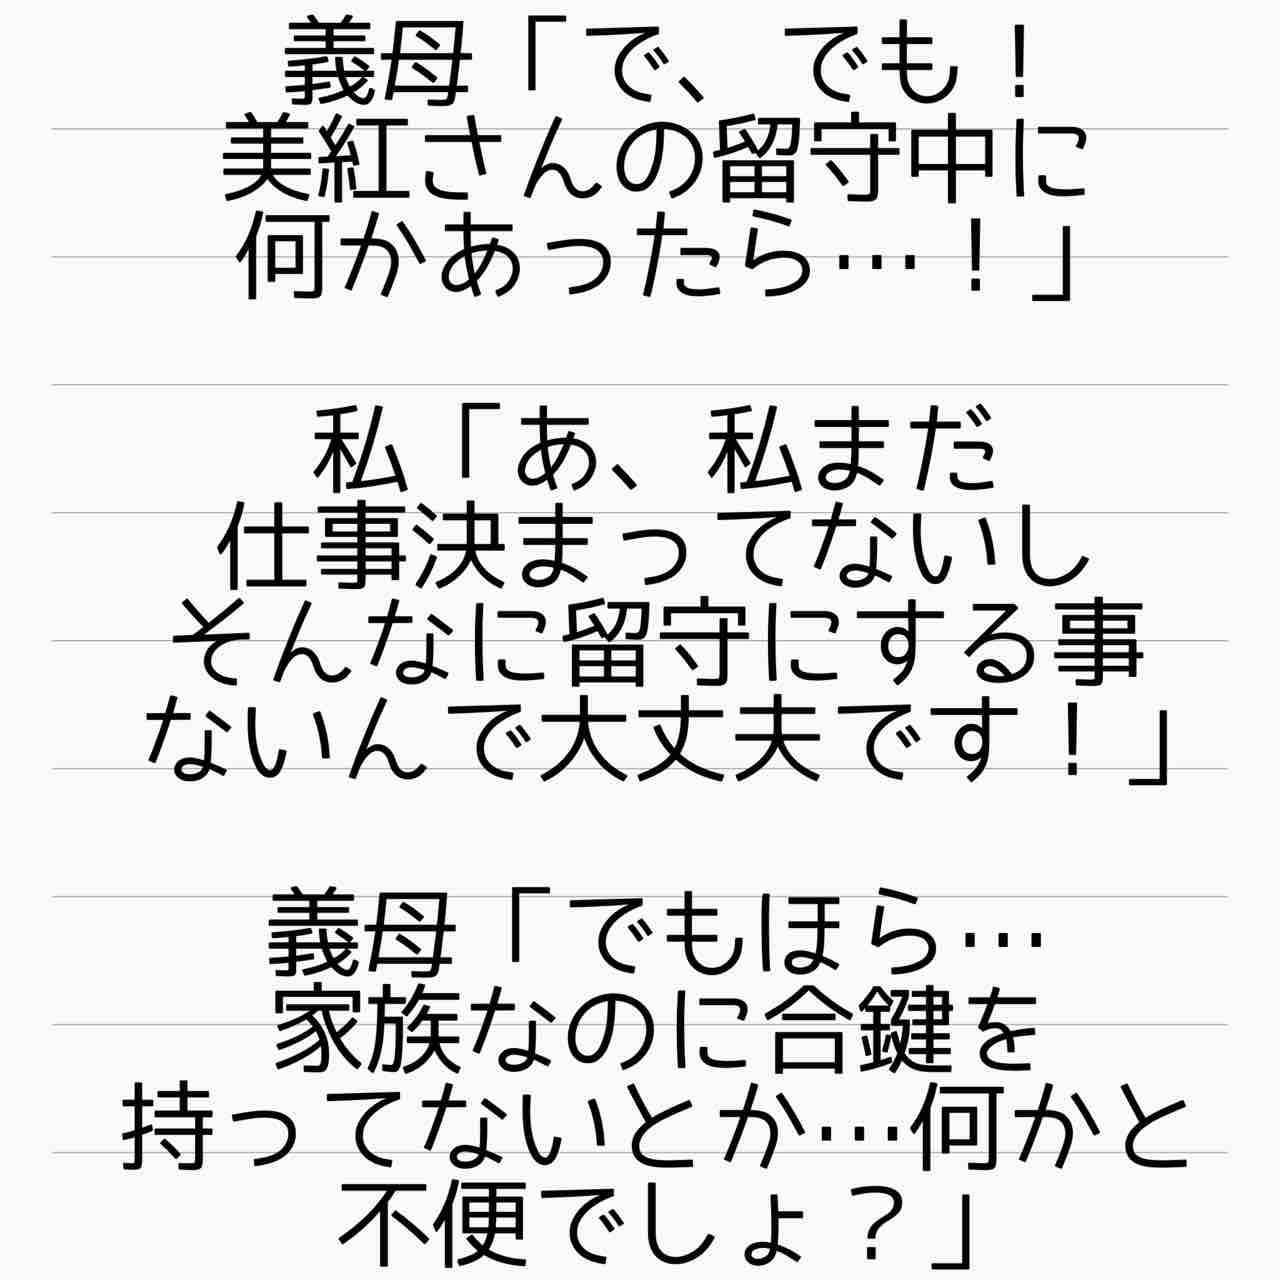 義母「で、でも！
美紅さんの留守中に
何かあったら…！」
私「あ、私まだ
仕事決まってないし
そんなに留守にする事
ないんで大丈夫です！」
義母「でもほら…
家族なのに合鍵を
持ってないとか…何かと
不便でしょ？」